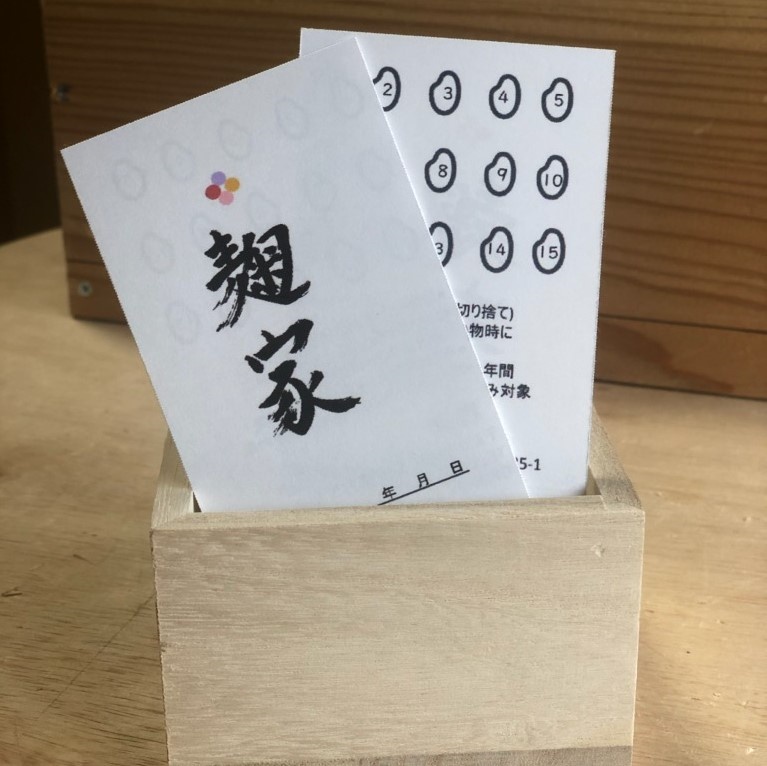 麹
家
年 月 日
2 3 4 5
8 9 10
3 14 15
切り捨て)
物時に
年間
み対象
5-1